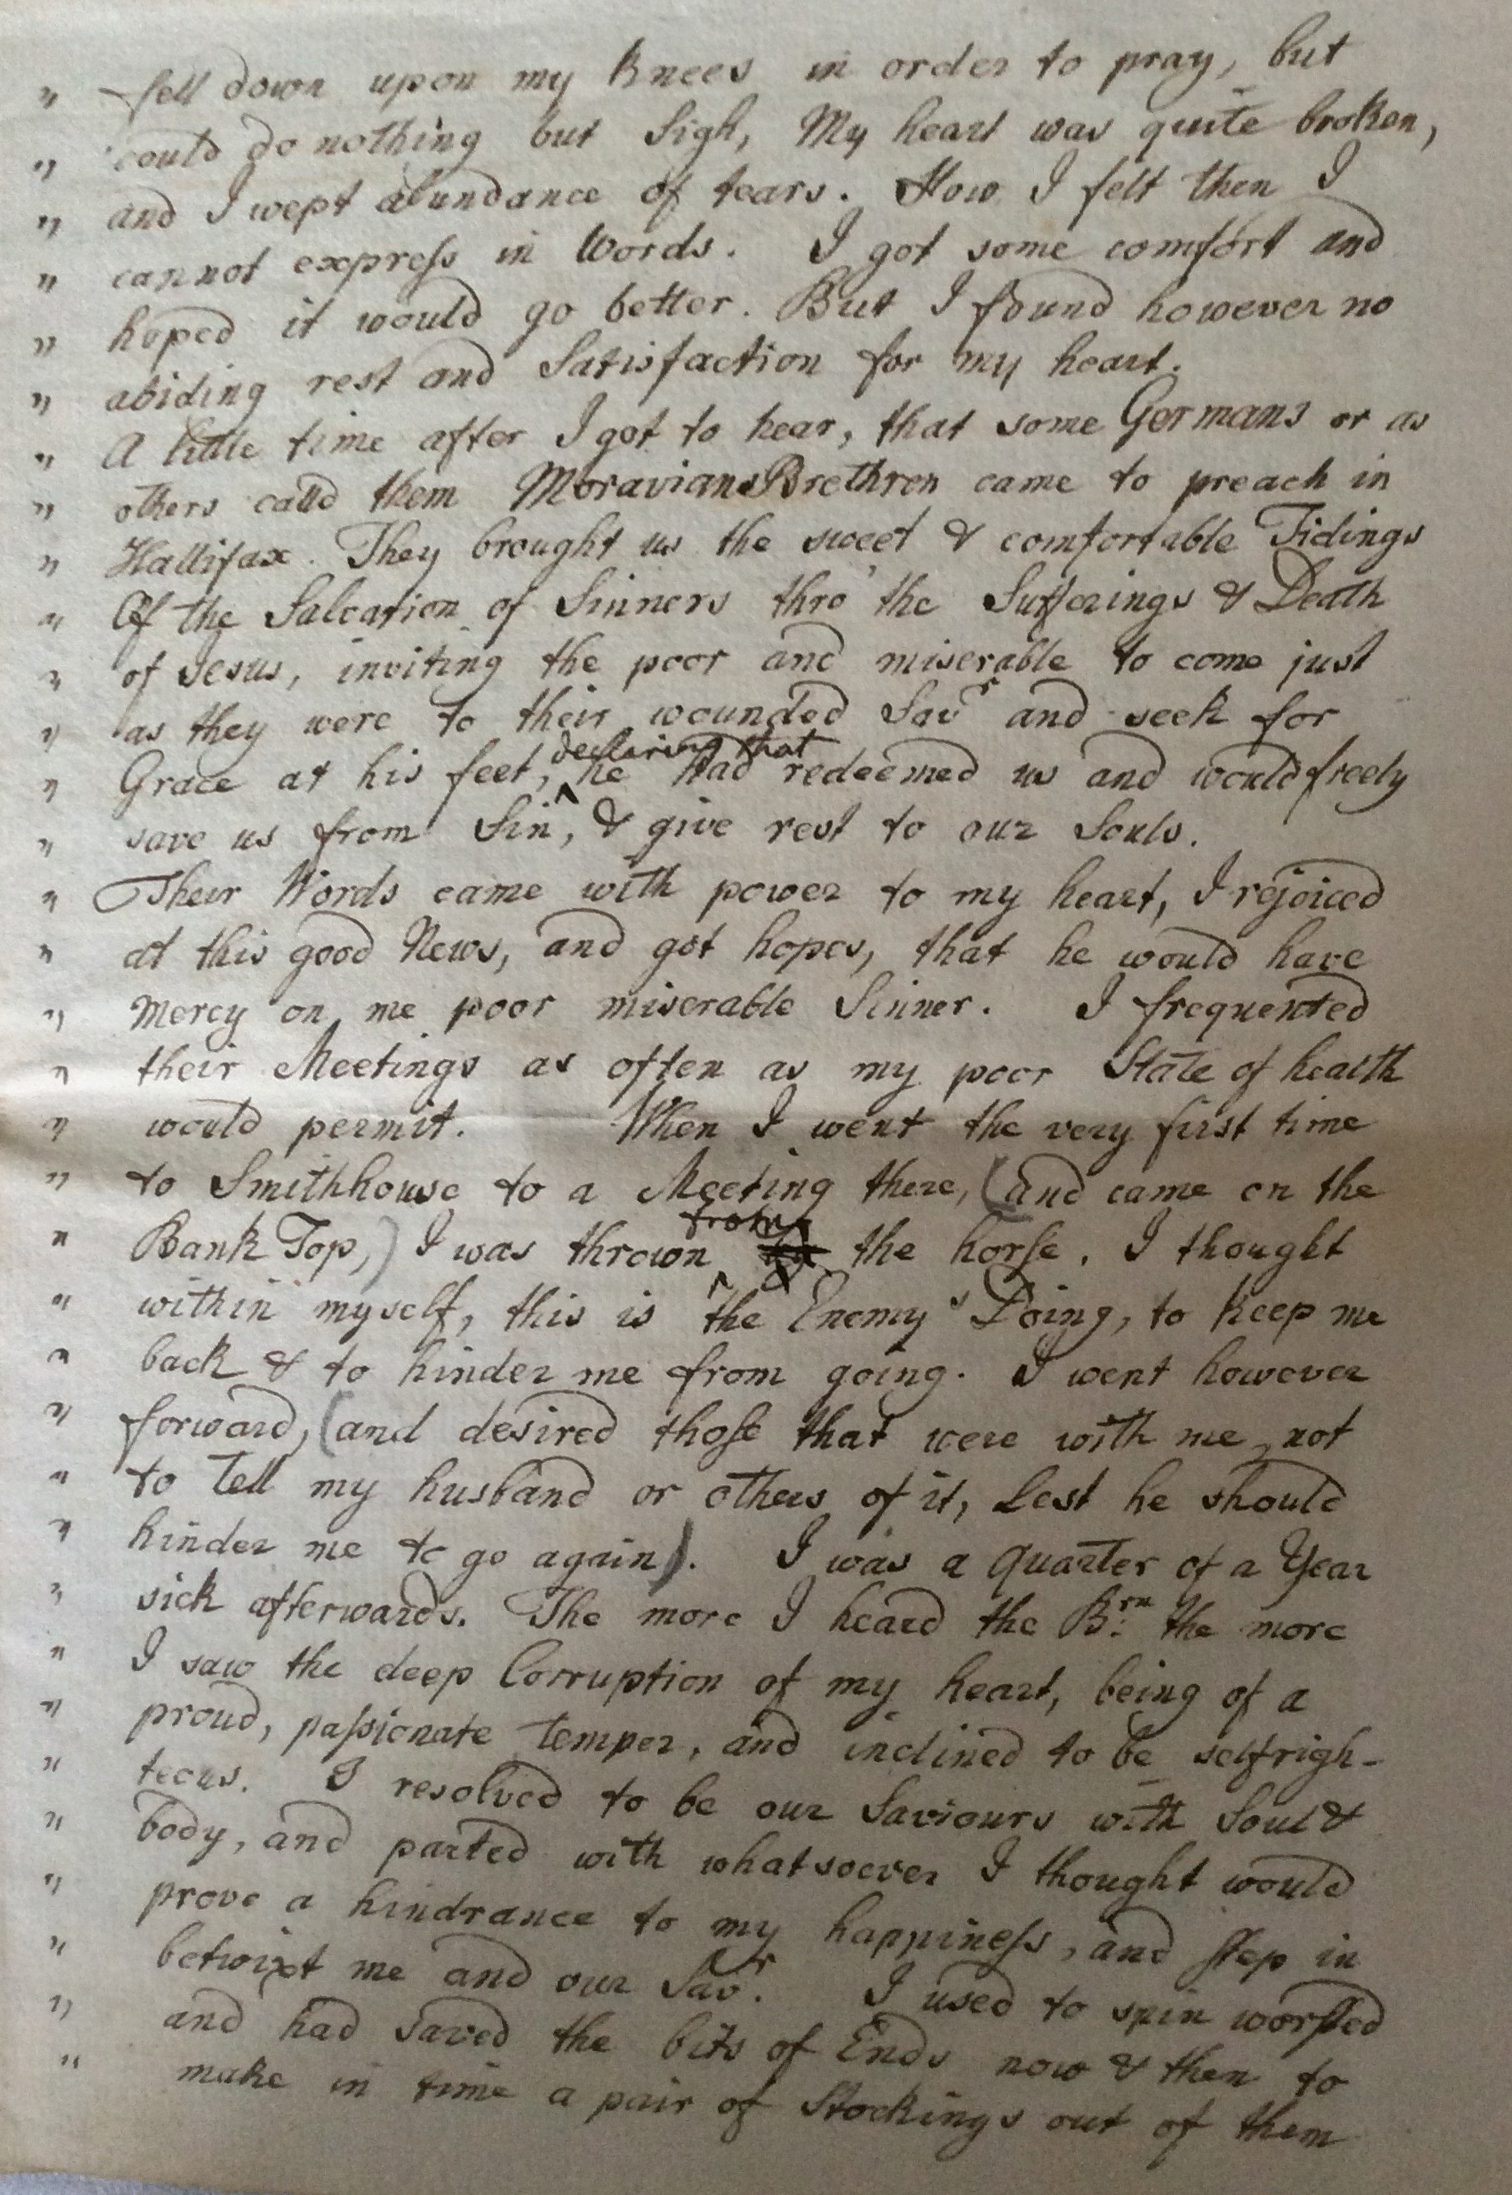 " fell down upon my knees in order to pray, but
" could do nothing but Sigh, My heart was quite broken,
" and I wept abundance of tears. How I felt then I
" cannot express in Words. I got some comfort and
" hoped it would go better. But I found however no
" abiding rest and Satisfaction for my heart.
" A little time after I got to hear, that some Germans or as
" others calld them Moravians Brethren came to preach in
" Hallifax. They brought us the sweet & comfortable Tidings
" Of the Salvation of Sinners thro' the Sufferings & Death
" of Jesus, inviting the poor and miserable to come just
" as they were to their wounded Savr and seek for
declaring that
" Grace at his feet, ^ he had redeemed us and would freely
" save us from Sin, & give rest to our Souls.
" Their Words came with power to my heart, I rejoiced
" at this good News, and got hopes, that he would have
" Mercy on me poor miserable Sinner. I frequented
" their Meetings as often as my poor State of health
" would permit. When I went the very first time
" to Smithhouse to a Meeting there, (and came on the
from
" Bank Top,) I was thrown ^ the horse. I thought
" within myself, this is the Enemy's Doing, to keep me
" back & to hinder me from going. I went however
" forward, (and desired those that were with me not
" to tell my husband or others of it, Lest he should
" hinder me to go again). I was a quarter of a Year
" sick afterwards. The more I heard the Brn: the more
" I saw the deep Corruption of my heart, being of a
" proud, passionate temper, and inclined to be selfrigh-
" teous. I resolved to be our Saviours with Soul &
" body, and parted with whatsoever I thought would
" prove a hindrance to my happiness, and step in
" betwixt me and our Savr. I used to spin worsted
" and had saved the bits of Ends now & then to
" make in time a pair of Stockings out of them